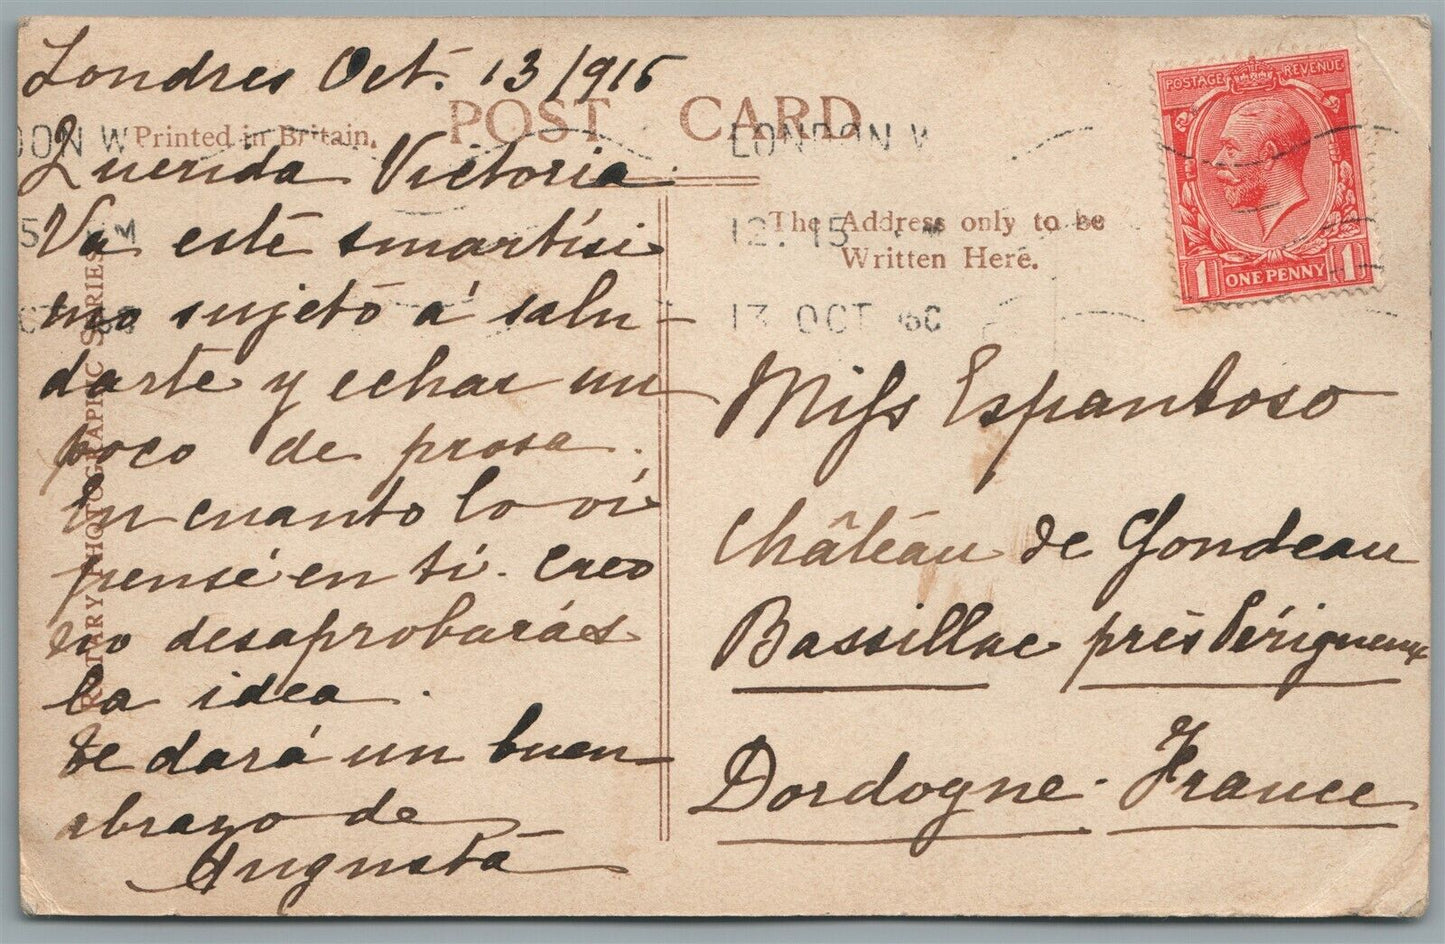 Londres Oct. 13/915
POST CARD
Printed in Britain.
LONDON W
Querida Victoria.
Va este smartísi
mo sujeto á salu-
darte y echar un
poco de prosa.
En cuanto lo ví
pensé en tí. Creo
no desaprobarás
la idea.
te dará un buen
abrazo de
Augusta
PHOTOGRAPHIC SERIES
The Address only to be
Written Here.
12.15
13 OCT
POSTAGE REVENUE
1 ONE PENNY 1
Miss Espantoso
Château de Gondeau
Bassillac près Périgueux
Dordogne - France